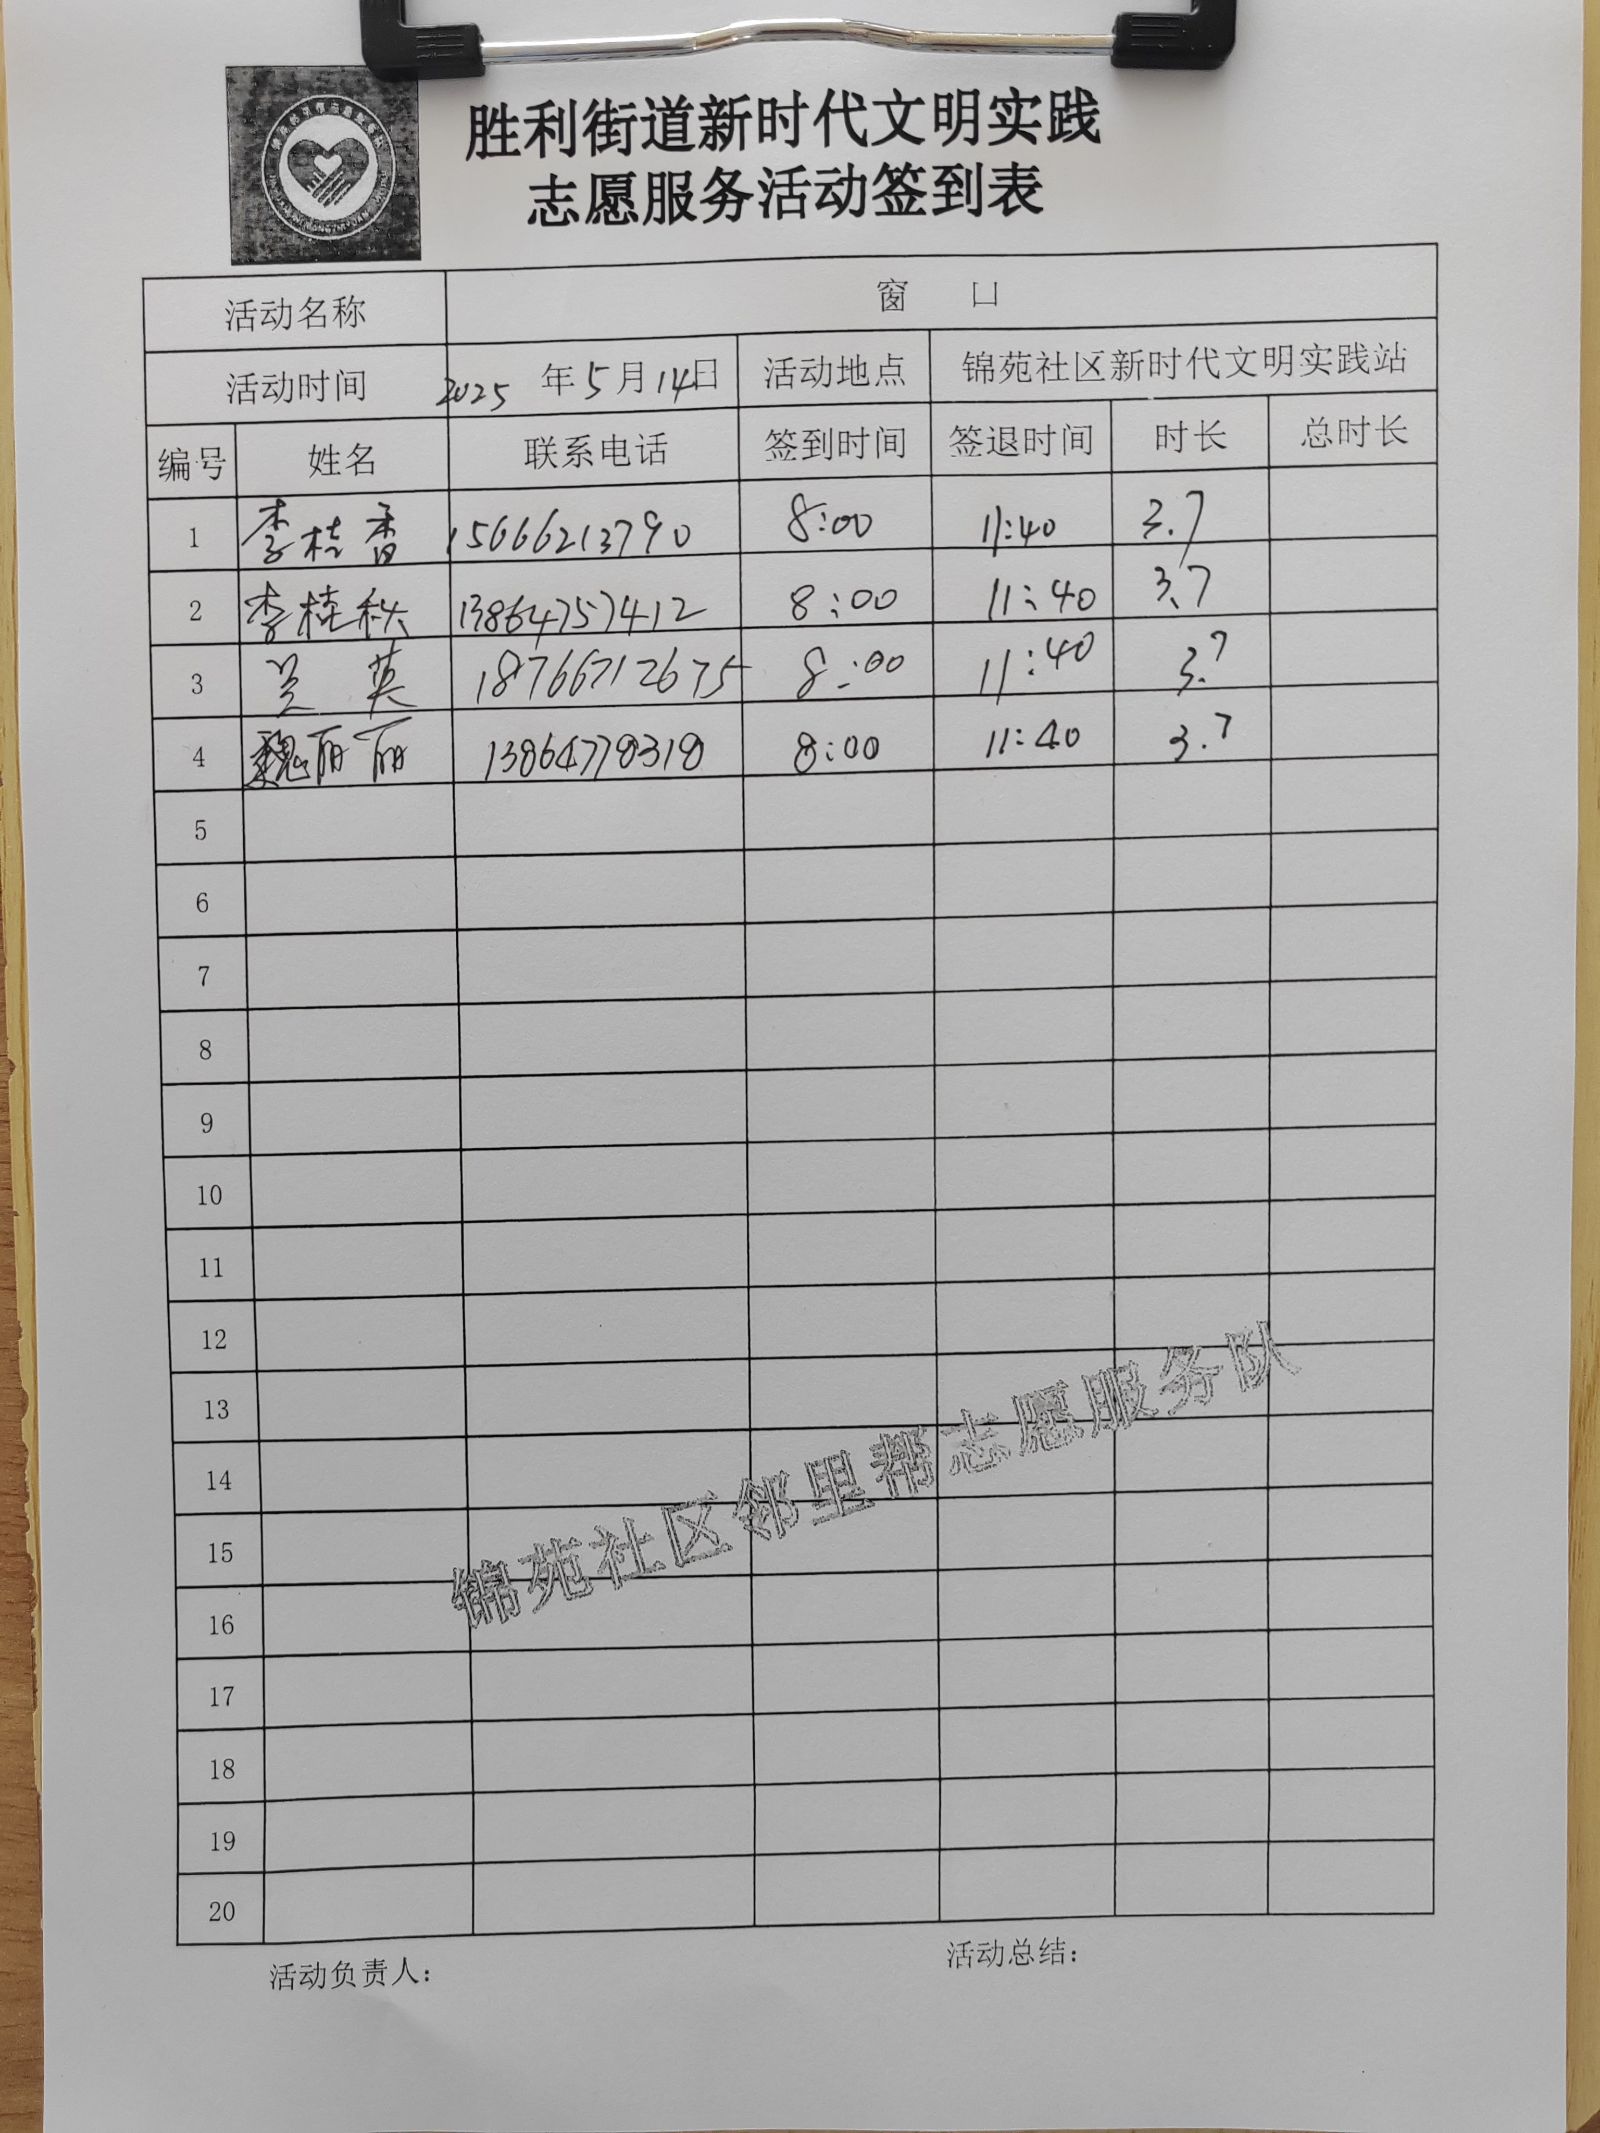 胜利街道新时代文明实践
志愿服务活动签到表
活动名称 窗 口
活动时间 2025 年 5 月 14 日 活动地点 锦苑社区新时代文明实践站
编号 姓名 联系电话 签到时间 签退时间 时长 总时长
1 李桂香 15666213790 8:00 11:40 3.7
2 李桂秋 13864757412 8:00 11:40 3.7
3 吴英 18766712675 8:00 11:40 3.7
4 魏丽丽 13864778318 8:00 11:40 3.7
5
6
7
8
9
10
11
12
13
14
15
16
17
18
19
20
锦苑社区邻里帮志愿服务队
活动负责人： 活动总结：